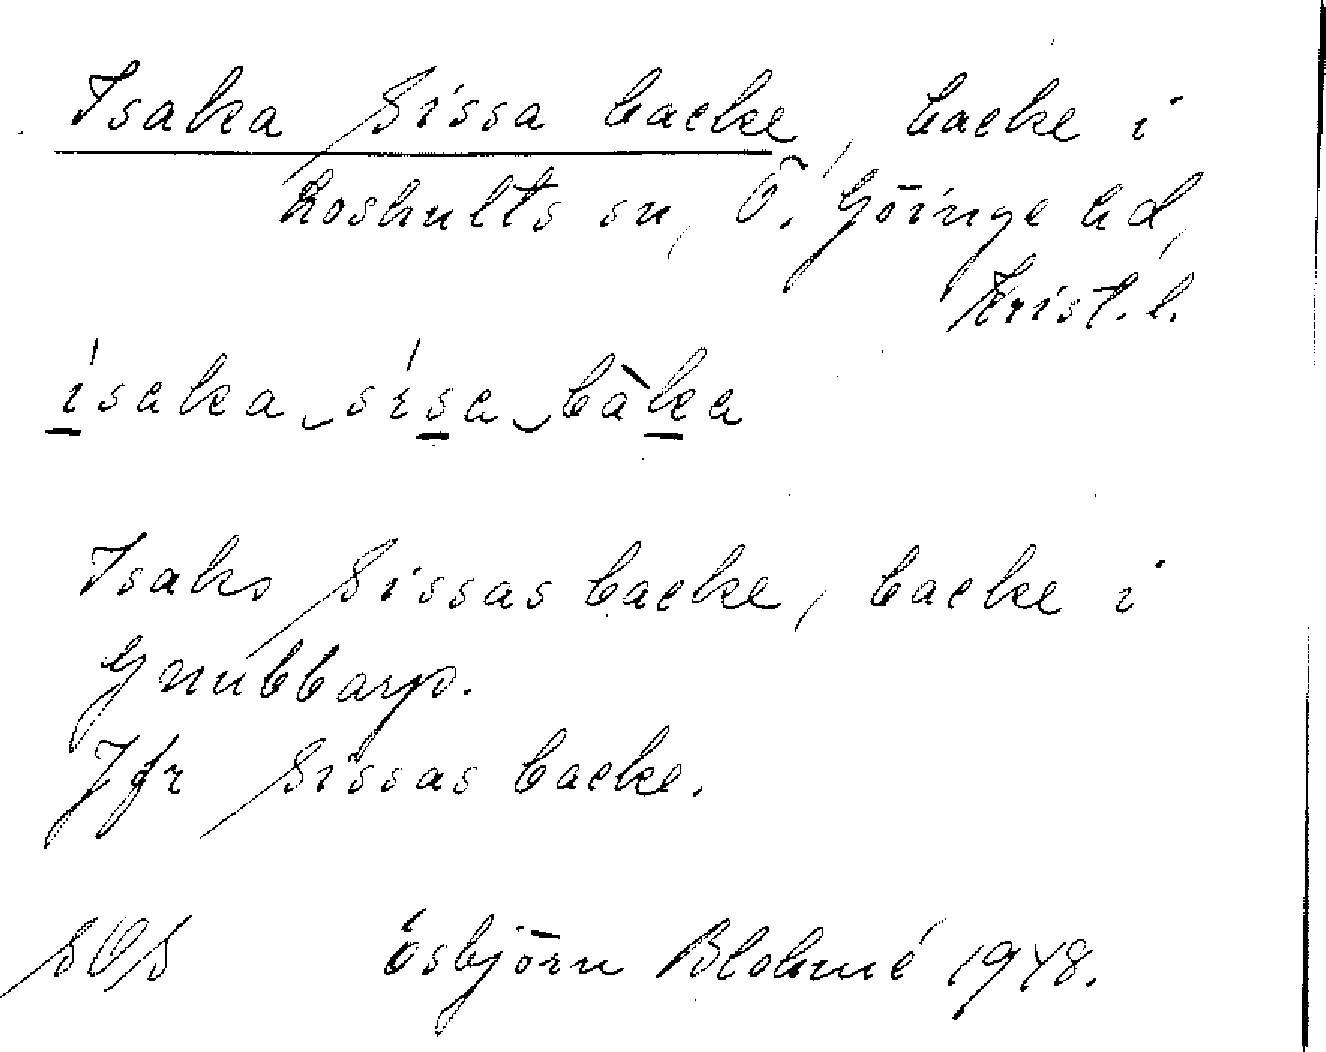 Isaka Sissa backe, backe i
Loshults sn, Ö. Göinge hd,
Krist. l.
ísaka sísa bàka
Isaks Sissas backe, backe i
Gnubbarp.
Jfr Sissas backe.
SOS Esbjörn Blohmé 1948.